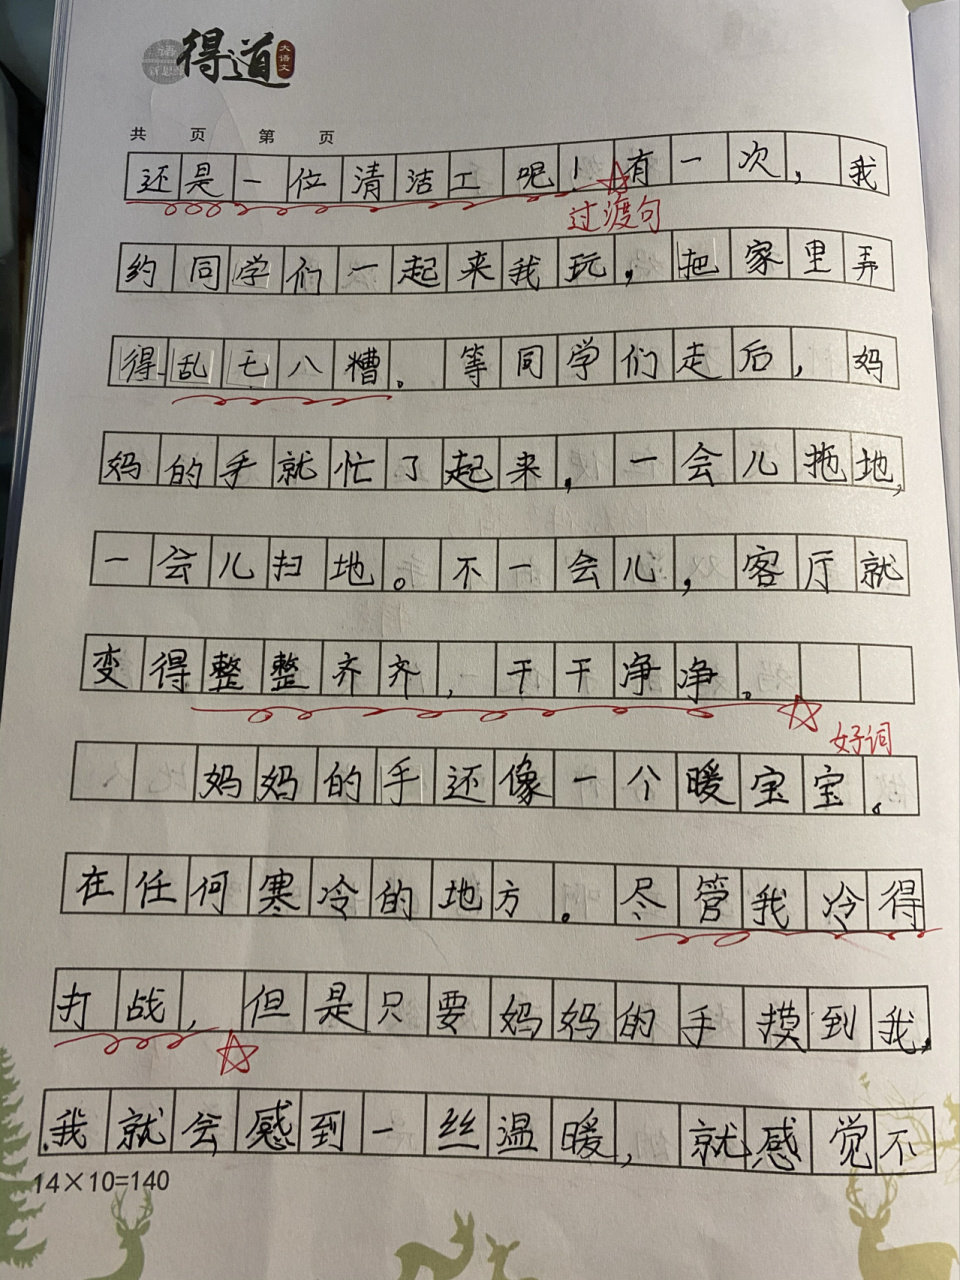 得道
大语文
共 页 第 页
还是一位清洁工呢！有一次，我
过渡句
约同学们一起来我玩，把家里弄
得乱七八糟。等同学们走后，妈
妈的手就忙了起来，一会儿拖地，
一会儿扫地。不一会儿，客厅就
变得整整齐齐，干干净净。
好词
妈妈的手还像一个暖宝宝。
在任何寒冷的地方。尽管我冷得
打战，但是只要妈妈的手摸到我，
我就会感到一丝温暖，就感觉不
14×10=140